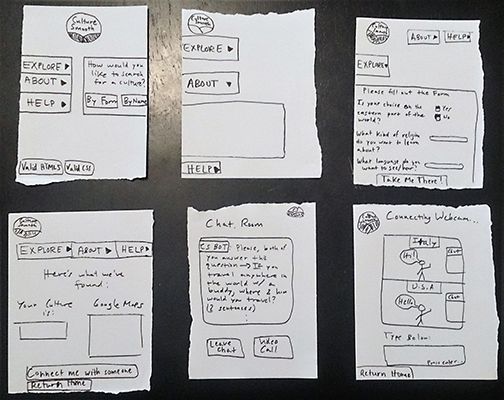 Culture
Smooth
EXPLORE
ABOUT
HELP
How would you
like to search
for a culture?
By Form
By Name
Valid HTML5
Valid CSS
Culture
Smooth
EXPLORE
ABOUT
HELP
Culture
Smooth
ABOUT
HELP
EXPLORE
Please fill out the Form
Is your choice on the
eastern part of the
world?
Yes
No
What kind of religion
do you want to learn
about?
What language do you
want to see/hear?
Take Me There!
Culture
Smooth
EXPLORE
ABOUT
HELP
Here's what we've
found:
Your Culture
is:
Google Maps
Connect me with someone
Return Home
Chat Room
CS BOT: Please, both of
you answer this
question → If you
travel anywhere in
the world w/ a
buddy, where & how
would you travel?
(3 sentences)
Leave
Chat
Video
Call
Connecting Webcam...
Italy
Hi!
Chat
U.S.A
Hello
Chat
Type Below:
Press enter
Return Home